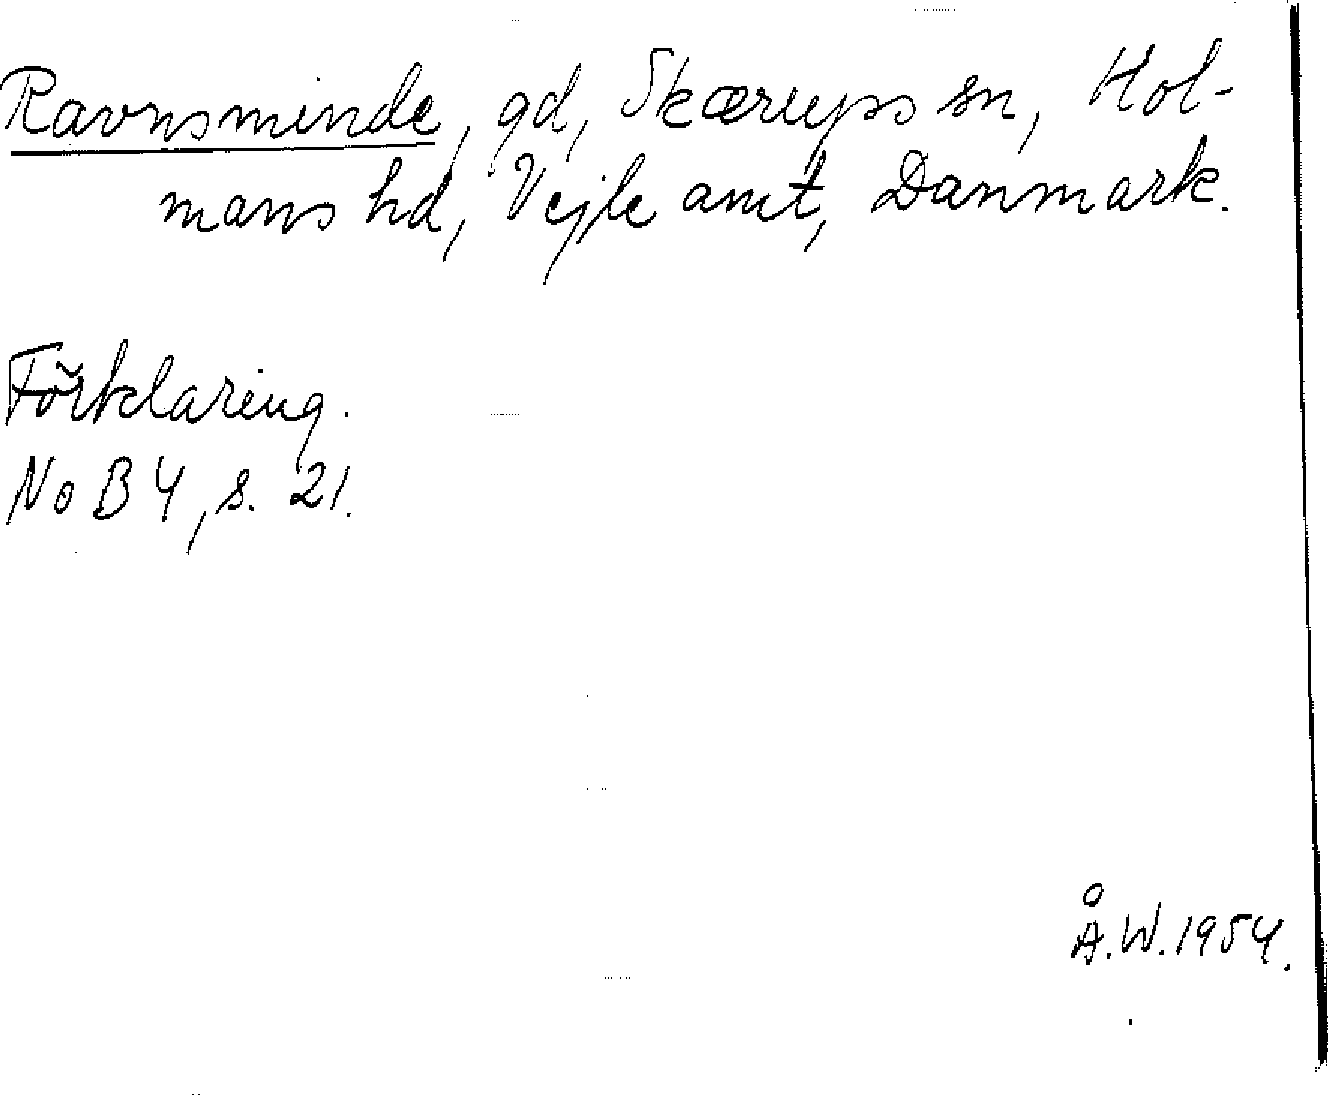 Ravnsminde, gd, Skærups sn, Hol-
mans hd, Vejle amt, Danmark.
Förklaring.
NoB 4, s. 21.
Å.W. 1954.